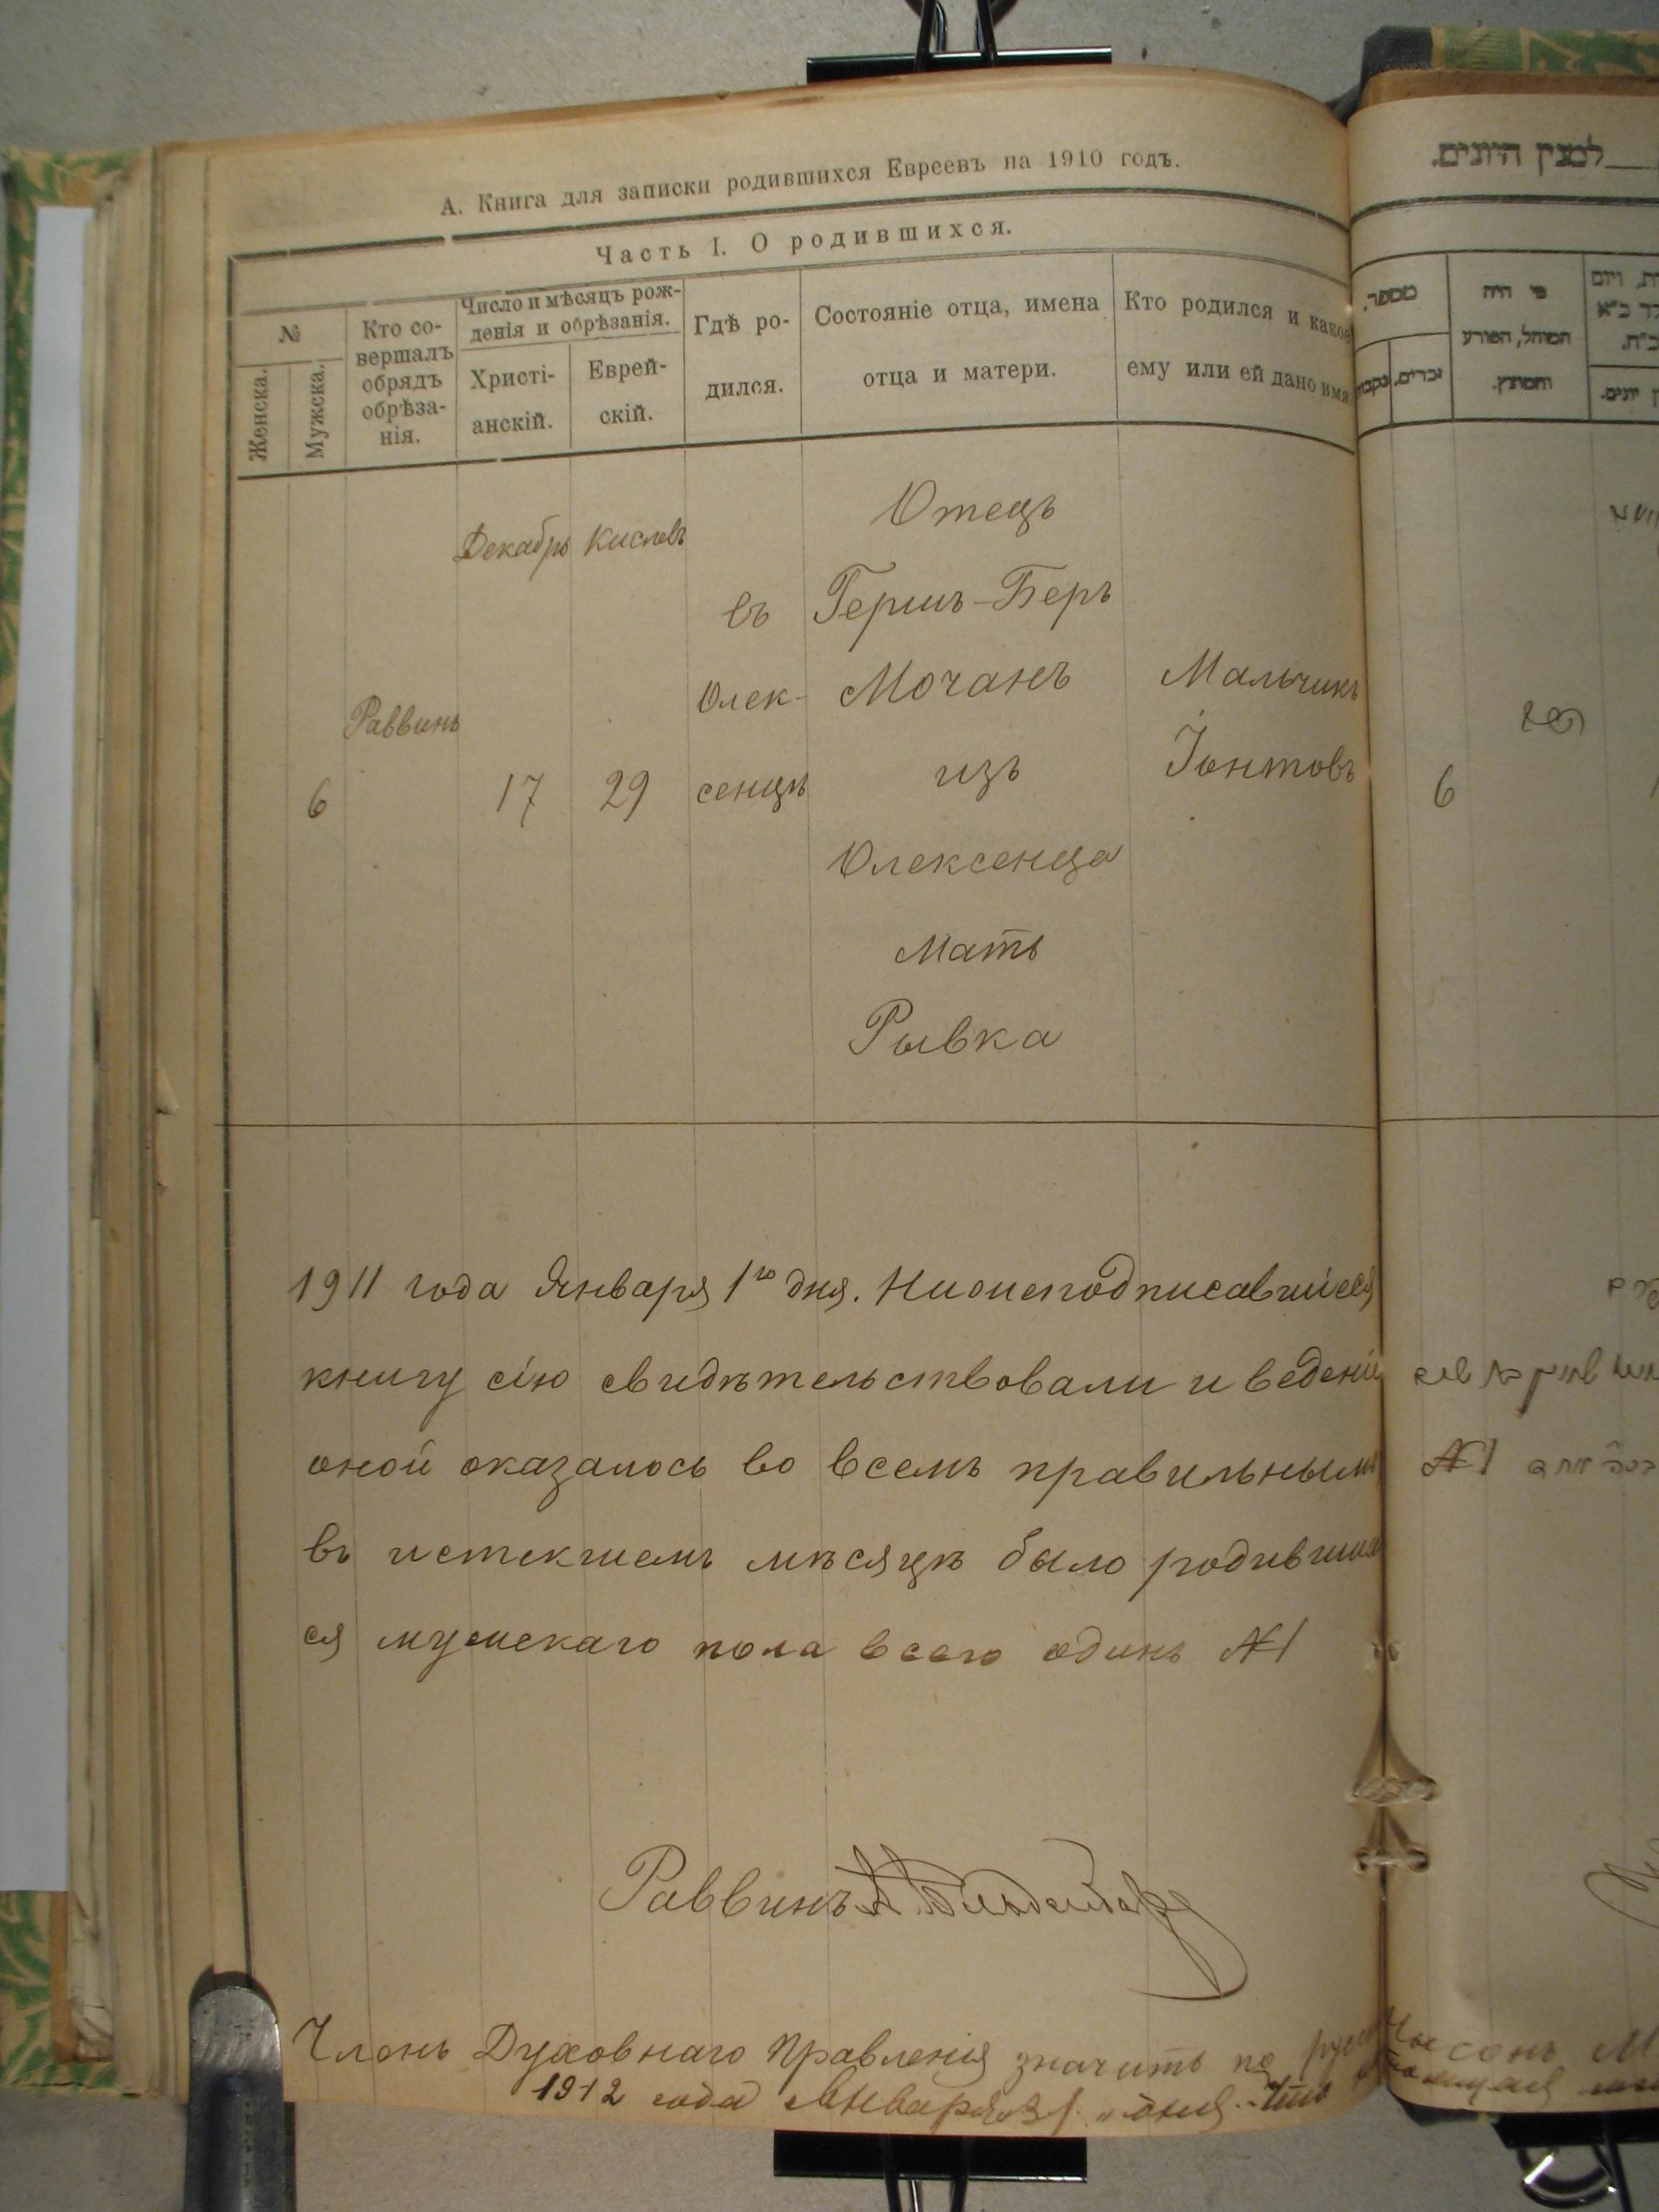 А. Книга для записки родившихся Евреевъ на 1910 годъ.
Часть I. О родившихся.
№
Женска.
Мужска.
Кто со-
вершалъ
обрядъ
обрѣза-
нія.
Число и мѣсяцъ рож-
денія и обрѣзанія.
Христі-
анскій.
Еврей-
скій.
Гдѣ ро-
дился.
Состояніе отца, имена
отца и матери.
Кто родился и какое
ему или ей дано имя
6
Раввинъ
Декабрь
17
Кислевъ
29
въ
Олек-
сенцѣ
Отецъ
Гершъ-Беръ
Мочанъ
изъ
Олексенца
Мать
Рывка
Мальчикъ
Іонтовъ
1911 года Января 1го дня. Нижеподписавшіеся
книгу сію свидѣтельствовали и веденіе
оной оказалось во всемъ правильнымъ
въ истекшемъ мѣсяцѣ было родивших
ся мужскаго пола всего одинъ №1
Раввинъ
Членъ Духовнаго Правленія значитъ по
1912 года Января 31 дня
למנין היונים.
מספר.
זכרים.
נקבות
מי היה
המוהל, הפורע
והמוצץ.
6
№1